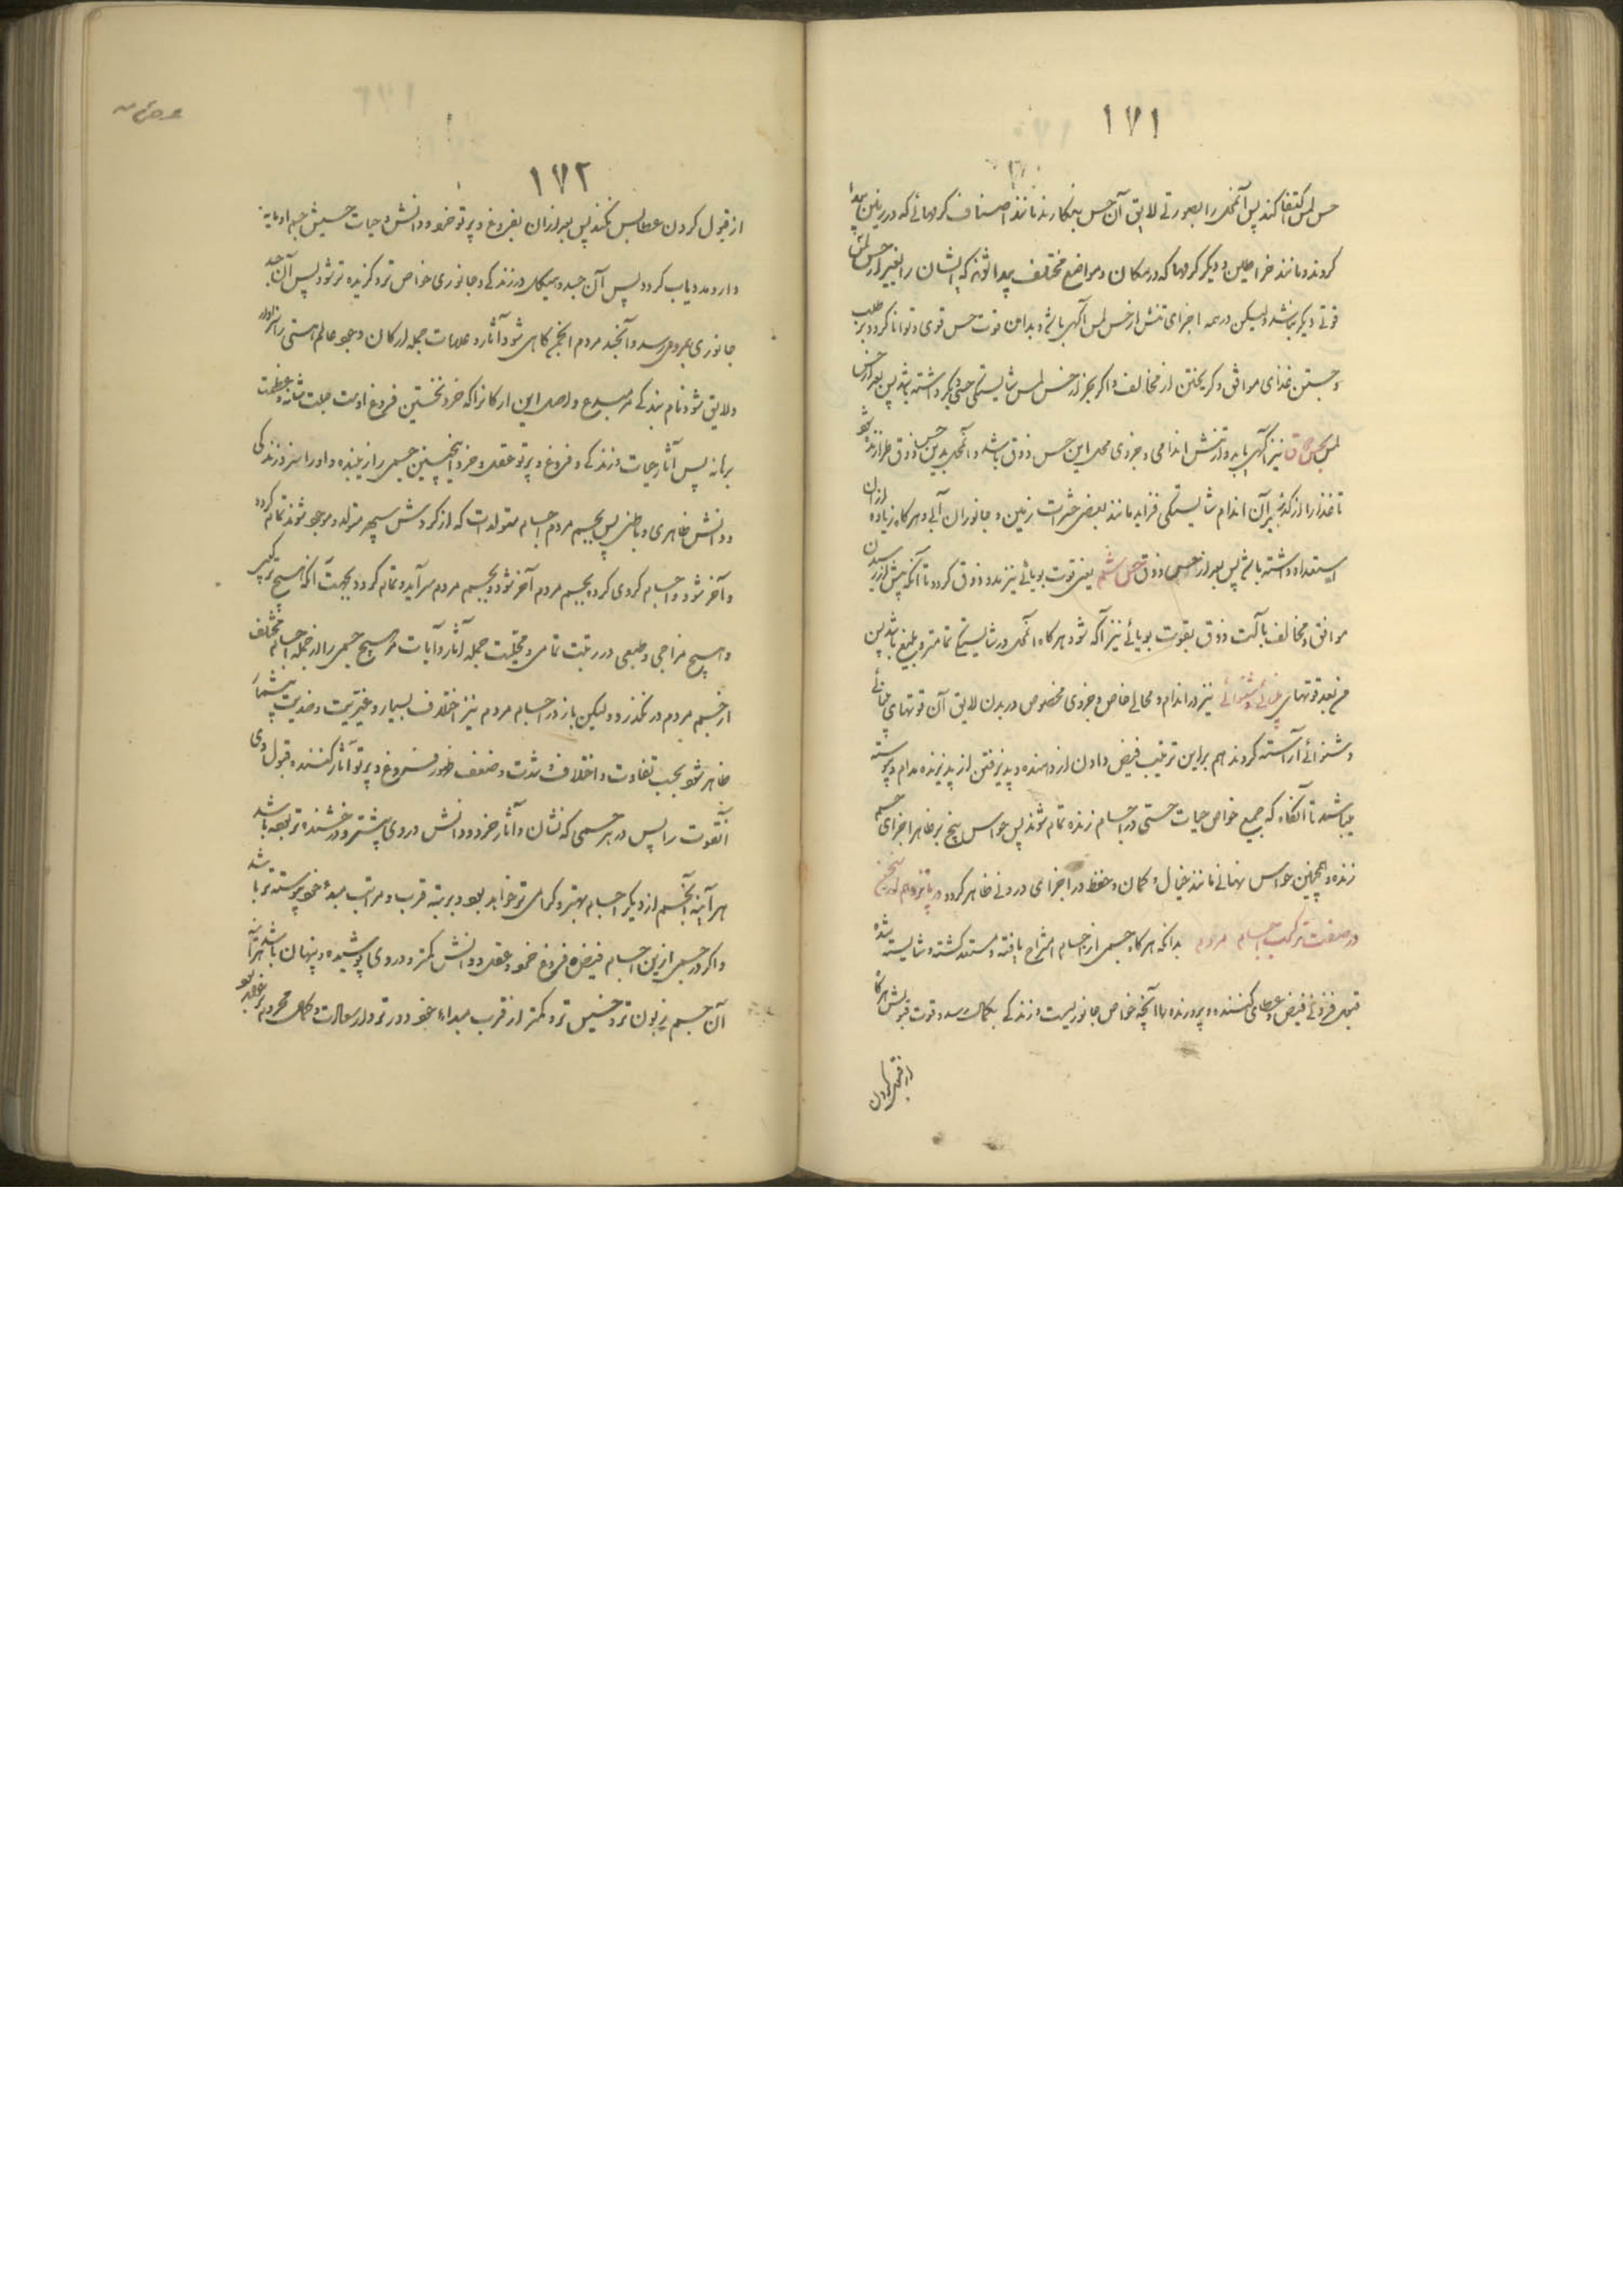 ۱۷۱
حس لمس اکتفا کند پس آنمحل را بصورتی لایق آن حس بنگارند مانند اصناف کرمهائی که در زمین پیدا
کردند و مانند خراطین و دیگر کرمها که در مکان و مواضع مختلف پیدا شوند که ایشان را بغیر از حس لمس
قوتی دیگر نباشد ولیکن در همه اجزای تنش از حس لمس آگهی باشد و بدان قوت حس قوی و توانا گردد بر طلب
و جستن غذای موافق و گریختن از مخالف و اگر بجز از حس لمس شایستگی حسی دیگر داشته باشد پس بعد از حس
لمس بحس ذوق نیز آگهی یابد و از تنش اندامی و جزوی محل این حس ذوق باشد و آنمحل بدین حس ذوق طرازنده شود
تا غذا را از گذر بر آن اندام شایستگی فزاید مانند بعضی حشرات زمین و جانوران آبی و هرگاه زیاده از آن
استعداد داشته باشد پس بعد از حس ذوق حس شم یعنی قوت بویائی نیز مدد ذوق گردد تا آنکه پیش از رسیدن
موافق و مخالف بآلت ذوق بقوت بویائی نیز آگه شود هرگاه آنمحل در شایستگی تمامتر و بلیغ باشد پس
من بعد قوتهای بینائی و شنوائی نیز در اندام و محالی خاص و جزوی مخصوص در بدن لایق آن قوتهای بینائی
و شنوائی آراسته گردند هم برین ترتیب فیض دادن از دهنده و پذیرفتن از پذیرنده مدام و پیوسته
میباشد تا آنگاه که جمیع خواص حیات حسی در اجسام زنده تمام شوند پس حواس پنج بر ظاهر اجزای جسم
زنده و همچنین حواس نهانی مانند خیال و گمان و حفظ در اجزای درونی ظاهر گردد در پانزدهم
در صفت ترکیب اجسام مردم بدانکه هرگاه جسمی از اجسام امتزاج یافته و مستعد گشته و شایسته شده
قبول فزونی فیض و عطای کننده و پرورنده با آنچه خواص جانوریست و زندگی بکمال رسد و قوت قبولش هرگاه
از قبول کردن
۱۷۲
از قبول کردن عطا بس نکند پس بعد از آن بفروغ و پرتو خرد و دانش و حیات
دارد مدد یاب گردد پس آن جسد و هیکل در زندگی و جانوری خواص تر و گزیده تر شود پس آن جسد
جانوری بمردمی رسد و آنجسد مردم گاهی شود آثار و علامات جمله ارکان وجود عالم هستی را سزاوار
و لایق شود نام بندگی مر مبدع و اصل این ارکانرا که خرد نخستین فروغ اوست
پس آثار حیات و زندگی و فروغ و پرتو عقل و خرد اینچنین جسمی را زیبنده و او را سزد زندگی
و دانش ظاهری و باطنی پس بجسم مردم اجسام متولدات که از گردش سپهر متولد و موجود شوند تمام گردد
و آخر شود و اجسام کردی کرد بجسم مردم آخر شود و بجسم مردم سرآید و تمام گردد بجهت آنکه هیچ ترکیب
و هیچ مزاجی و طبعی در رتبت تمامی و جمله آثار و آیات مر هیچ جسمی را از جمله اجسام مختلف
از جسم مردم در نگذرد ولیکن باز در اجسام مردم نیز اختلاف بسیار و غیریت و ضدیت بیشمار
ظاهر شود بحسب تفاوت و اختلاف شدت و ضعف ظهور فروغ و پرتو آثار کننده و قبول وی
آنقوت را پس در هر جسمی که نشان و آثار خرد و دانش در وی بیشتر و درخشنده تر بود باشد
هر آینه آنجسم از دیگر اجسام بهتر و گرامی تر خواهد بود و برتبه قرب و مراتب مبدء خود پیوسته تر باشد
و اگر در جسمی ازین اجسام فیض و فروغ خرد و عقل و دانش کمتر و در وی پوشیده و پنهان باشد هر آینه
آن جسم زبون تر و خسیس تر و کمتر از قرب مبداء خود دور تر و از سعادت و کمال محروم تر خواهد بود